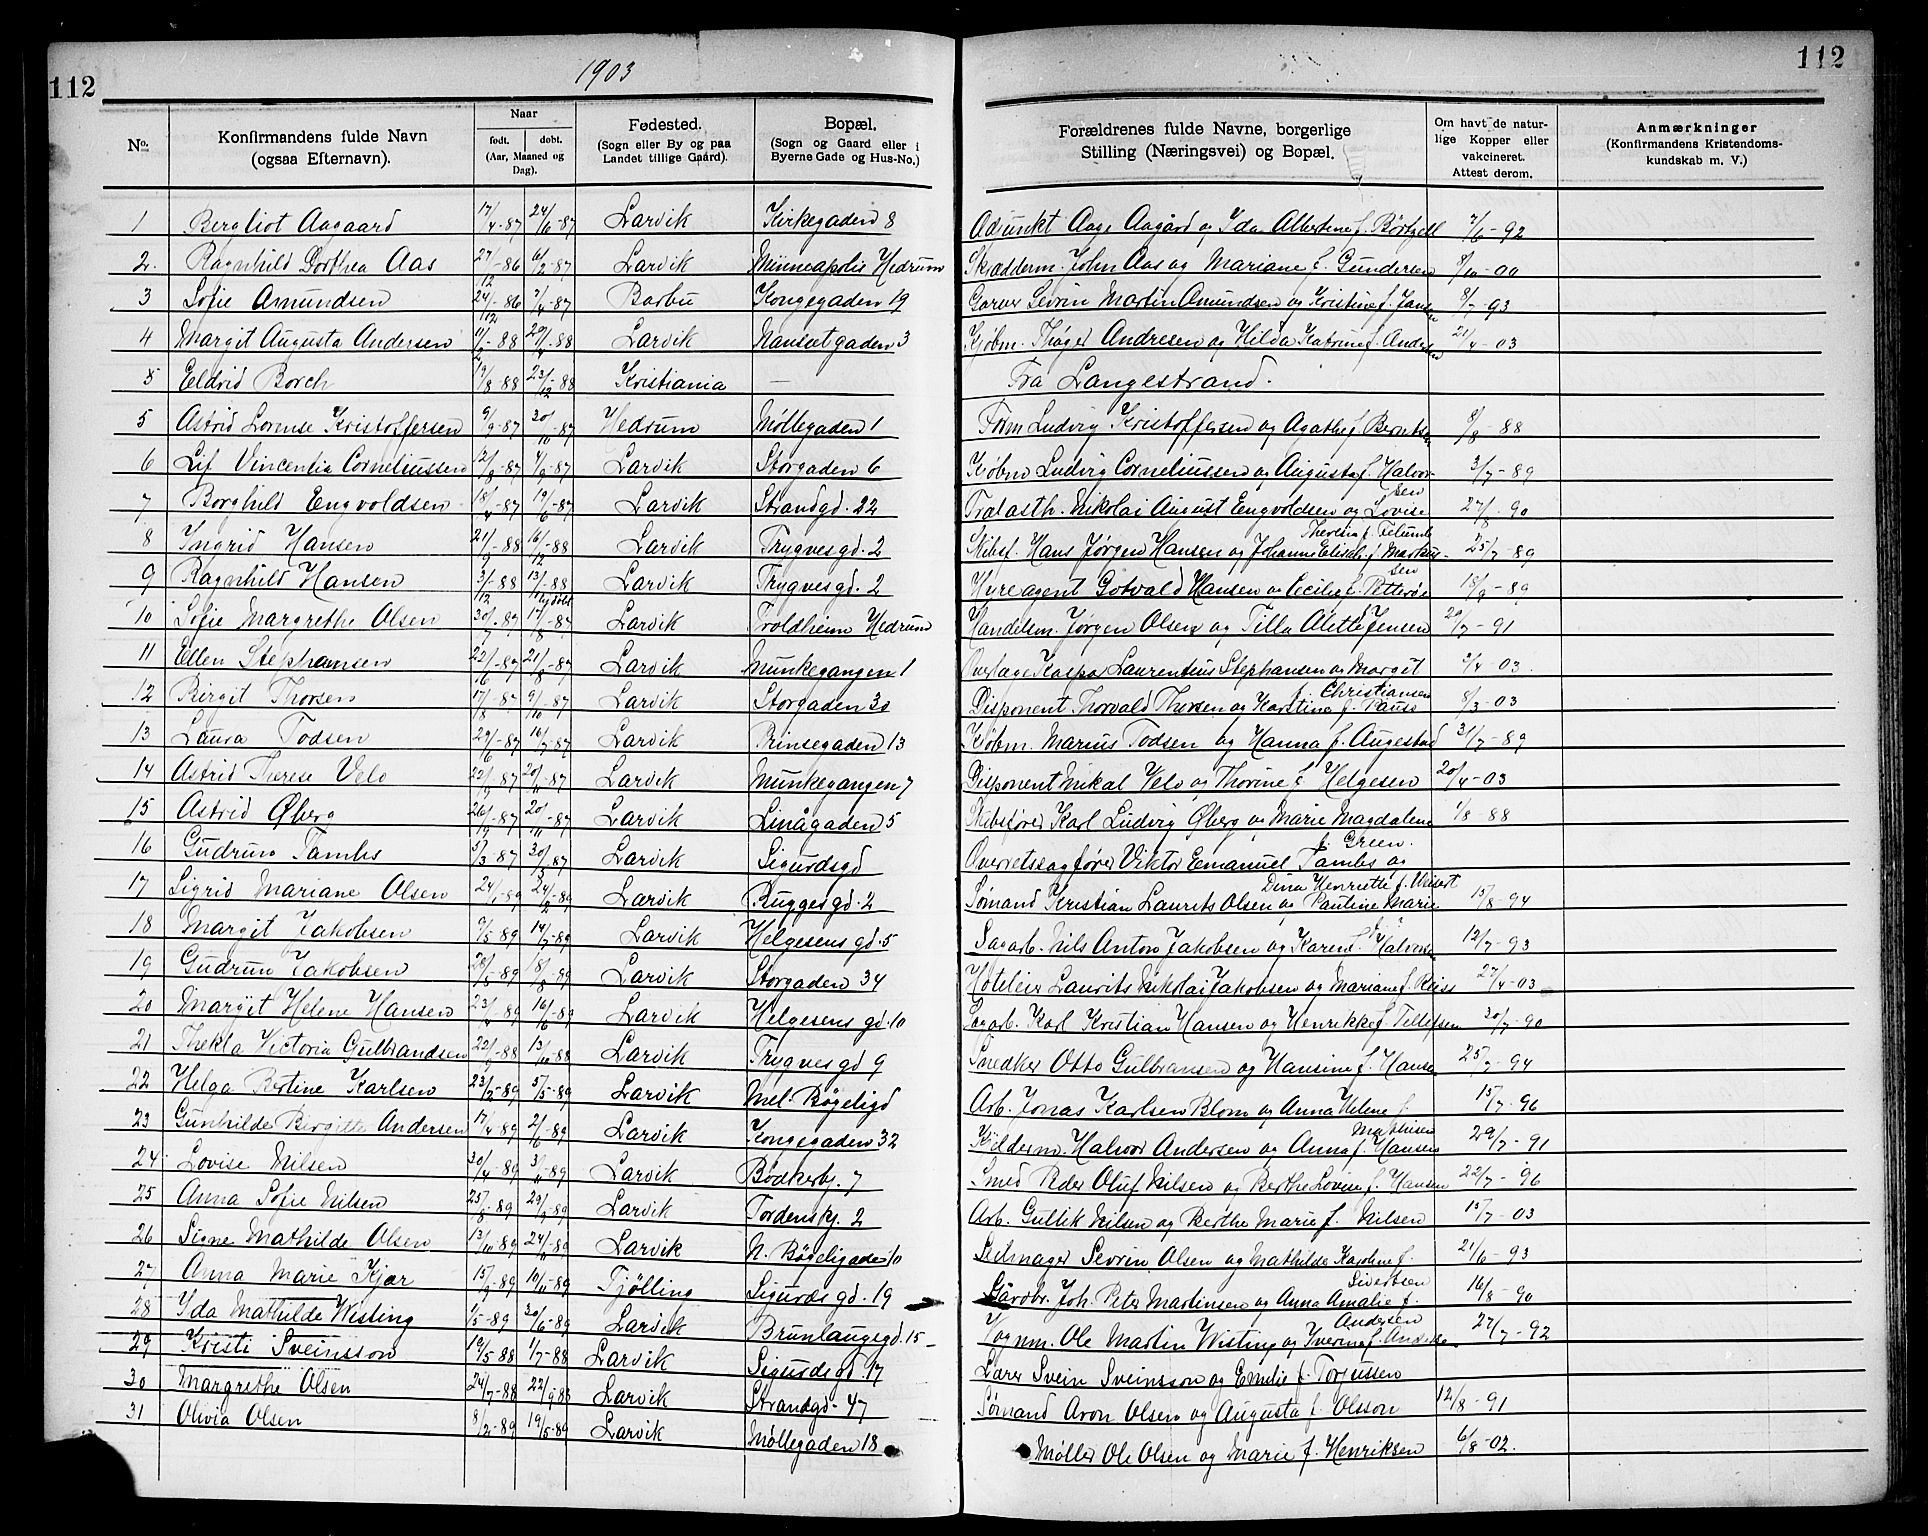 112
1903
112
No.
Konfirmandens fulde Navn
(ogsaa Efternavn).
Naar
født.
døbt.
(Aar, Maaned og
Dag).
Fødested.
(Sogn eller By og paa
Landet tillige Gaard).
Bopæl.
(Sogn og Gaard eller i
Byerne Gade og Hus-No.)
Forældrenes fulde Navne, borgerlige
Stilling (Næringsvei) og Bopæl.
Om havt de natur-
lige Kopper eller
vakcineret.
Attest derom.
Anmærkninger
(Konfirmandens Kristendoms-
kundskab m. V.)
1 Bergliot Aagaard 17/4-87 24/6-87 Larvik Kirkegaden 8 Adjunkt Aage Aagård og Ida Albertine f. Börtzell 7/6-92
2. Ragnhild Dorthea Aas 27/12-86 6/2-87 Larvik Minneapolis Hedrum Skrædderm. John Aas og Mariane f. Gundersen 8/10-00
3 Sofie Amundsen 24/12-86 3/4-87 Barbu Kongegaden 19 Garver Sevrin Martin Amundsen og Kristine f. Jansen 8/7-93
4 Margit Augusta Andersen 11/2-88 29/4-88 Larvik Nansetgaden 3 Kjøbm. Thøger Andresen og Hilda Katrine f. Andersen 21/4-03
5 Eldrid Borch 19/8-88 23/12-88 Kristiania — Fra Langestrand.
5 Astrid Lorense Kristoffersen 9/9-87 30/10-87 Hedrum Møllegaden 1 Form Ludvig Kristoffersen og Agathe f. Berntsen 8/8-88
6 Lif Vincentia Corneliussen 12/8-87 4/9-87 Larvik Storgaden 6 Kjøbm Ludvig Corneliussen og Augusta f. Halvor-
sen 3/7-89
7 Borghild Engvoldsen 18/4-87 19/6-87 Larvik Strandgd. 22 Trælasth. Nikolai August Engvoldsen og Lovise
Theresia f. 27/8-90
8 Ingrid Hansen 21/9-88 16/12-88 Larvik Trygvesgd. 2 Skibsf. Hans Jørgen Hansen og Johanne Elise f. Markus-
sen 25/7-89
9 Ragnhild Hansen 3/12-88 13/-88 Larvik Trygvesgd. 2 Hyreagent Gotvald Hansen og Cecilie f. Petterøe 18/9-89
10 Sofie Margrethe Olsen 30/7-87 17/8-87 Larvik Troldheim Hedrum Handelsm. Jørgen Olsen og Tilla Alette f. Jensen 29/7-91
11 Ellen Stephansen 22/6-87 21/8-87 Larvik Munkegangen 1 Kaspar Laurentius Stephansen og Margit
f. Christiansen 2/4-03.
12 Birgit Thorsen 17/8-87 9/10-87 Larvik Storgaden 30 Disponent Thorvald Thorsen og Karstine f. Pauss 8/3-03
13 Laura Todsen 29/6-87 16/7-87 Larvik Prinsegaden 13 Kjøbm. Marius Todsen og Hanna f. Augestad 31/7-89
14 Astrid Therese Velo 22/9-87 20/11-87 Larvik Munkegangen 7 Disponent Mikal Velo og Thorine f. Helgesen 20/4-03
15 Astrid Øberg 26/9-87 20/11-87 Larvik Linågaden 5 Skibsfører Karl Ludvig Øberg og Marie Magdalene
f. Green. 1/8-88
16 Gudrun Tambs 5/3-87 30/5-87 Larvik Sigurdsgd Overretssagfører Viktor Emanuel Tambs og
Dina Henriette f.
17 Sigrid Mariane Olsen 24/1-89 24/2-89 Larvik Ruggesgd. 2 Sømand Kristian Laurits Olsen og Pautine Marie 15/8-94
18 Margit Jakobsen 9/5-89 14/7-89 Larvik Helgesens gd. 5 Sagarb. Nils Anton Jakobsen og Karen f. Halvorsen 12/7-93
19 Gudrun Jakobsen 28/5-89 18/8-89 Larvik Storgaden 34 Hoteleier Laurits Nikolai Jakobsen og Mariane f. Reiss 27/4-03
20 Margit Helene Hansen 23/4-89 16/6-89 Larvik Helgesens gd. 10 Sagarb. Karl Kristian Hansen og Henrikke f. Tellefsen 30/7-90
21 Thekla Victoria Gulbrandsen 22/9-88 13/10-88 Larvik Trygvesgd 9 Snedker Otto Gulbransen og Hansine f. Hansen 25/7-94
22 Helga Bertine Karlsen 23/2-89 5/5-89 Larvik Mel. Bøgeligd Arb. Jonas Karlsen Blom og Anna Helene f.
Mathisen 15/7-96
23 Gunhilde Birgitte Andersen 17/4-89 2/6-89 Larvik Kongegaden 32 Kjelderm. Halvor Andersen og Anna f. Hansen 29/7-91
24 Lovise Nilsen 30/4-89 3/11-89 Larvik Bødkerbg. 7 Smed Peder Oluf Nilsen og Berthe Lovise f. Hansen 22/7-96
25 Anna Sofie Nilsen 25/8-89 29/9-89 Larvik Tordenskj. 2 Arb. Gullik Nilsen og Berthe Marie f. Nilsen 15/7-03
26 Signe Mathilde Olsen 13/10-89 24/11-89 Larvik N. Bøgeligaden 10 Seilmager Sevrin Olsen og Mathilde Karoline f.
Sivertsen 21/6-93
27 Anna Marie Kjær 15/9-89 10/11-89 Tjølling Sigurds gd. 19 Gårdbr. Joh. Peter Martinsen og Anna Amalie f.
Andersen 16/8-90
28 Yda Mathilde Wisting 1/5-89 30/6-89 Larvik Brunlaugegd. 15 Vognm. Ole Martin Wisting og Iverine f. Andersen 27/7-92
29 Kristi Sveinsson 19/5 88 1/7-88 Larvik Sigurdsgd. 17 Lærer Svein Sveinsson og Emilie f. Torjussen
30 Margrethe Olsen 24/7-88 22/9 88 Larvik Strandgd. 47 Sømand Aron Olsen og Augusta f. Olsson 12/8-91
31 Olivia Olsen 8/2-89 19/5-89 Larvik Møllegaden 18 Møller Ole Olsen og Marie f. Henriksen 6/8-02.